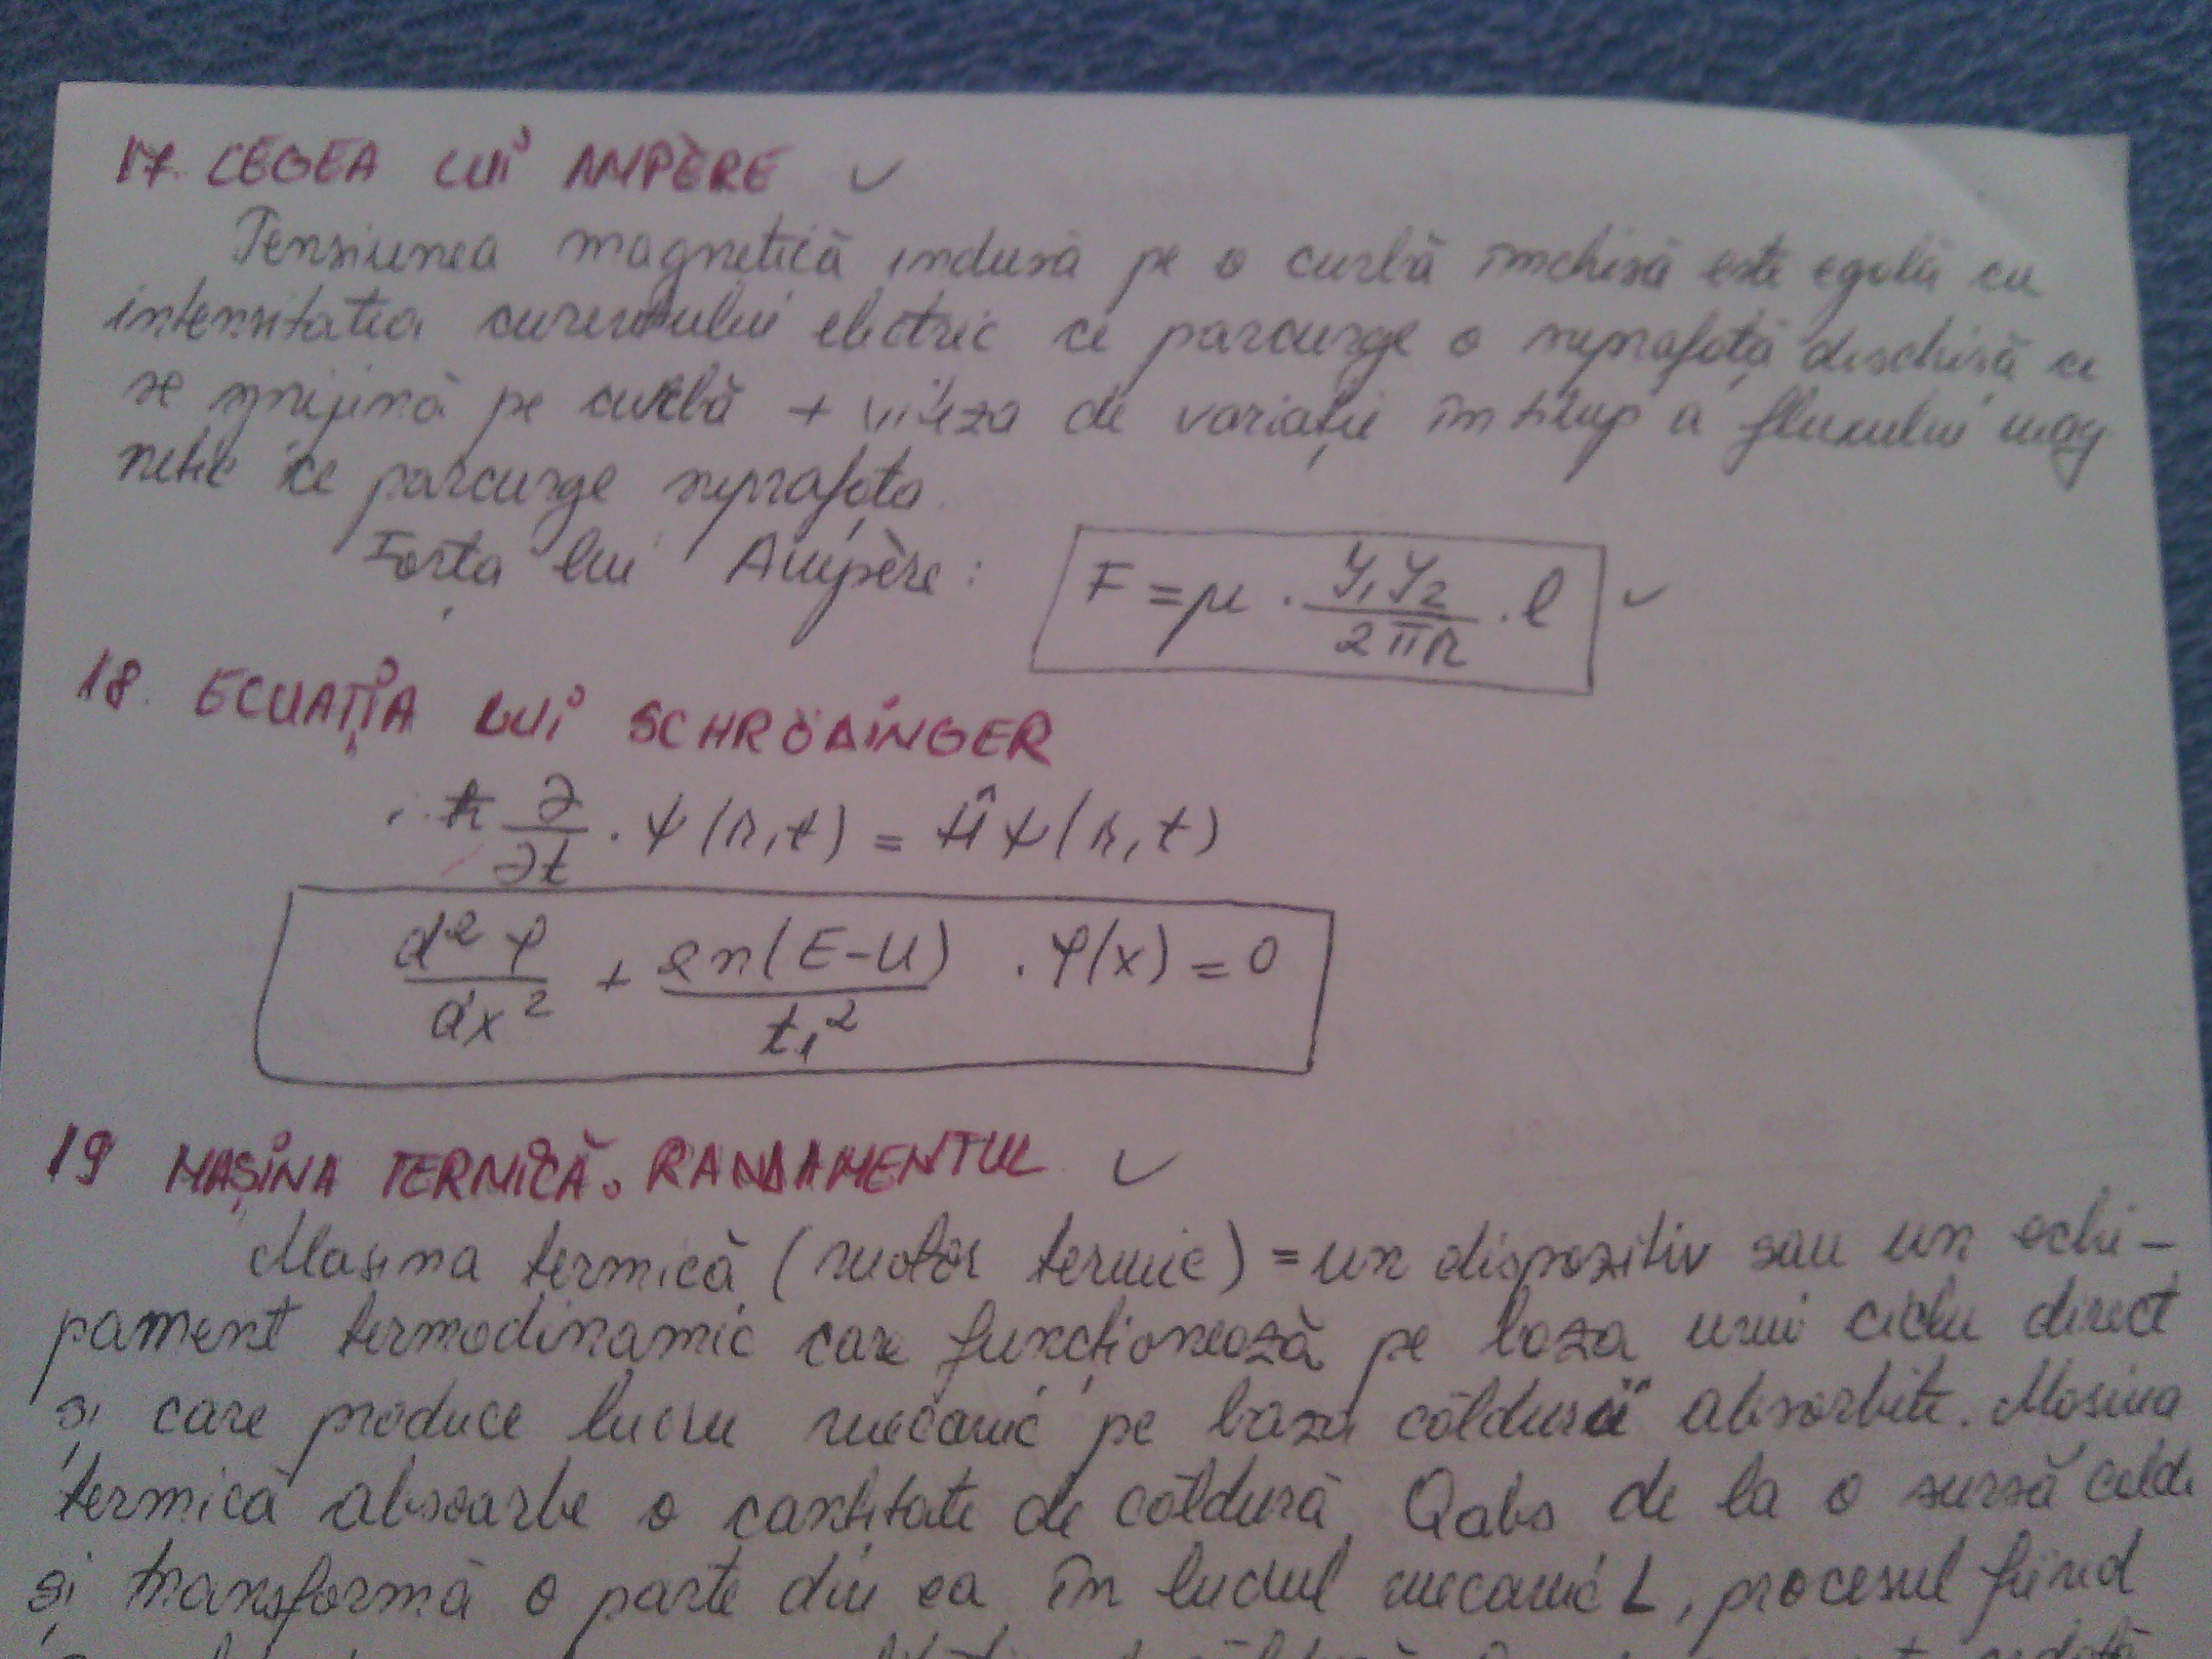 17. LEGEA LUI AMPÈRE ✓
Tensiunea magnetică indusă pe o curbă închisă este egală cu
intensitatea curentului electric ce parcurge o suprafață deschisă ce
se sprijină pe curbă + viteza de variație în timp a fluxului mag
netic ce parcurge suprafața.
Forța lui Ampère: F = μ · (I₁I₂)/(2πr) · l ✓
18. ECUAȚIA LUI SCHRÖDINGER
i·ħ ∂/∂t · ψ(r,t) = Ĥψ(r,t)
d²φ/dx² + 2m(E-U)/t₁² · φ(x) = 0
19 MAȘINA TERMICĂ. RANDAMENTUL ✓
Mașina termică (motor termic) = un dispozitiv sau un echi-
pament termodinamic care funcționează pe baza unui ciclu direct
și care produce lucru mecanic pe baza căldurii absorbite. Mașina
termică absoarbe o cantitate de căldură Qabs de la o sursă caldă
și transformă o parte din ea în lucrul mecanic L, procesul fiind